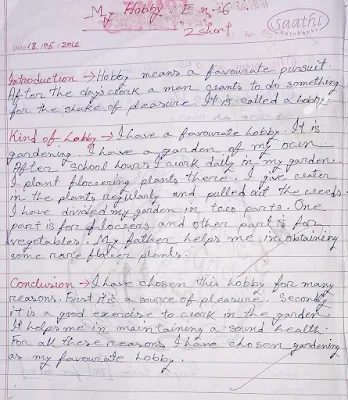 My Hobby E n-6
2 short
Saathi
Notebooks
Date 18/05/2016
Introduction → Hobby means a favourite pursuit.
After the day's work a man wants to do something
for the shake of pleasure. It is called a hobby.
Kind of Hobby → I have a favourate hobby. It is
gardening. I have a garden of my own.
After school hours I work daily in my garden.
I plant flowering plants there. I give water
in the plants regularly and pulled out the weeds.
I have divided my garden in two parts. One
part is for flowers and other part is for
vegetables. My father helps me in obtaining
some rare flower plants.
Conclusion → I have chosen this hobby for many
reasons. First it is a source of pleasure. Secondly
it is a good exercise to work in the garden.
It helps me in maintaining a sound health.
For all these reasons I have chosen gardening
as my favourate hobby.